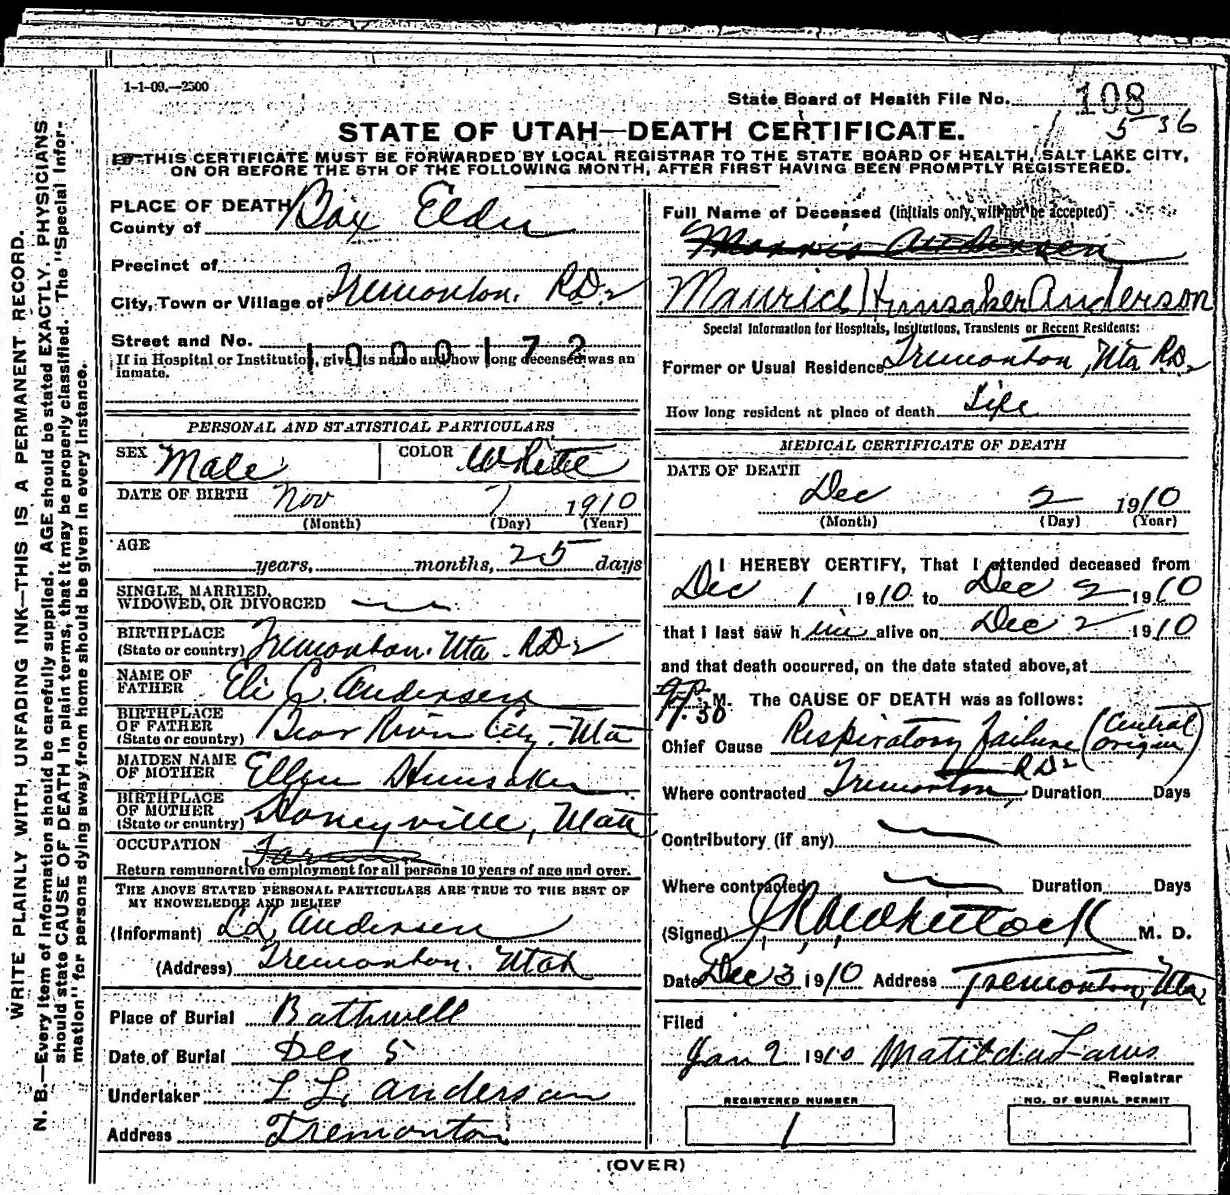 1-1-09.—2500
State Board of Health File No. 108
536
STATE OF UTAH—DEATH CERTIFICATE.
THIS CERTIFICATE MUST BE FORWARDED BY LOCAL REGISTRAR TO THE STATE BOARD OF HEALTH, SALT LAKE CITY,
ON OR BEFORE THE 5TH OF THE FOLLOWING MONTH, AFTER FIRST HAVING BEEN PROMPTLY REGISTERED.
WRITE PLAINLY WITH, UNFADING INK—THIS IS A PERMANENT RECORD.
N. B.—Every item of information should be carefully supplied. AGE should be stated EXACTLY. PHYSICIANS
should state CAUSE OF DEATH in plain terms, that it may be properly classified. The "Special Infor-
mation" for persons dying away from home should be given in every instance.
PLACE OF DEATH
County of Box Elder
Precinct of
City, Town or Village of Tremonton. R.D.2
Street and No.
1000172
If in Hospital or Institution, give its name and how long deceased was an
inmate.
PERSONAL AND STATISTICAL PARTICULARS
SEX Male COLOR White
DATE OF BIRTH Nov 7 1910
(Month) (Day) (Year)
AGE
years, months, 25 days
SINGLE, MARRIED,
WIDOWED, OR DIVORCED
BIRTHPLACE
(State or country) Tremonton. Uta. R.D.2
NAME OF
FATHER Eli C. Andersen
BIRTHPLACE
OF FATHER
(State or country) Bear River City, Uta
MAIDEN NAME
OF MOTHER Ellen Hunsaker
BIRTHPLACE
OF MOTHER
(State or country) Honeyville, Utah
OCCUPATION Farmer
Return remunerative employment for all persons 10 years of age and over.
THE ABOVE STATED PERSONAL PARTICULARS ARE TRUE TO THE BEST OF
MY KNOWELEDGE AND BELIEF
(Informant) L.L. Andersen
(Address) Tremonton. Utah
Place of Burial Bothwell
Date of Burial Dec 5
Undertaker L L. anderson
Address Tremonton
Full Name of Deceased (Initials only, will not be accepted)
Morris Andersen
Maurice Hunsaker Anderson
Special Information for Hospitals, Institutions, Transients or Recent Residents:
Former or Usual Residence Tremonton, Uta R.D.2
How long resident at place of death Life
MEDICAL CERTIFICATE OF DEATH
DATE OF DEATH
Dec 2 1910
(Month) (Day) (Year)
I HEREBY CERTIFY, That I attended deceased from
Dec 1 1910 to Dec 2 1910
that I last saw h im alive on Dec 2 1910
and that death occurred, on the date stated above, at
9.30 P.M. The CAUSE OF DEATH was as follows:
Chief Cause Respiratory failure (Central origin)
Where contracted Tremonton, R.D.2 Duration Days
Contributory (if any)
Where contracted Duration Days
(Signed) M. D.
Date Dec 3 1910 Address Tremonton, Uta,
Filed
Jan 2 1910 Matilda Laws
Registrar
REGISTERED NUMBER
1
NO. OF BURIAL PERMIT
(OVER)